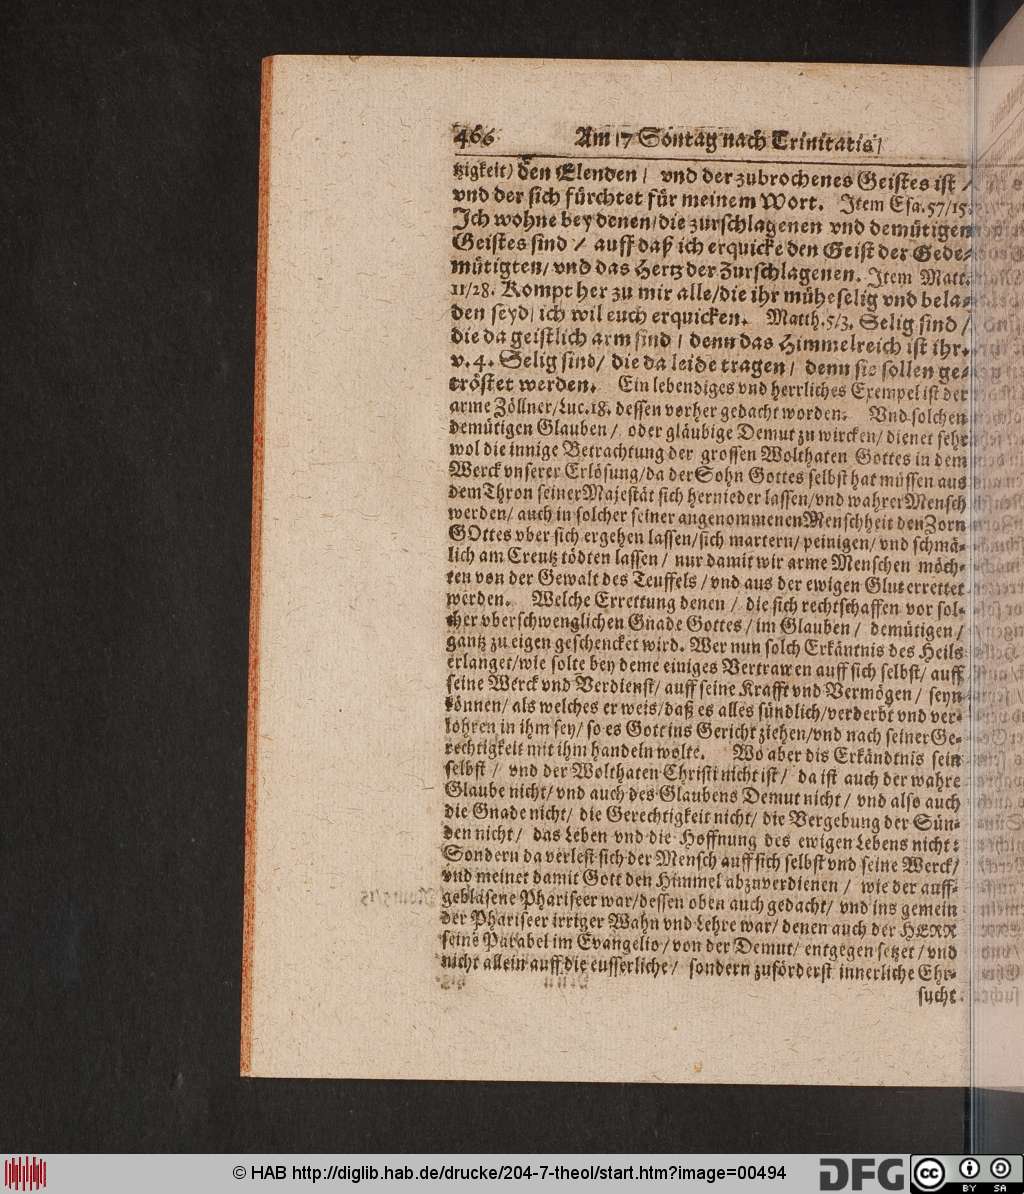 466 Am 17 Sontag nach Trinitatis/
tzigkeit) den Elenden/ vnd der zubrochenes Geistes ist /
vnd der sich fürchtet für meinem Wort. Item Esa. 57/15.
Ich wohne bey denen/die zurschlagenen vnd demütigen
Geistes sind / auff daß ich erquicke den Geist der Gede-
mütigten/ vnd das Hertz der Zurschlagenen. Item Matt.
11/28. Kompt her zu mir alle/die ihr müheselig vnd bela-
den seyd/ ich wil euch erquicken. Matth. 5/3. Selig sind /
die da geistlich arm sind / denn das Himmelreich ist ihr.
v. 4. Selig sind/ die da leide tragen/ denn sie sollen ge-
tröstet werden. Ein lebendiges vnd herrliches Exempel ist der
arme Zöllner/Luc. 18. dessen vorher gedacht worden. Vnd solchen
demütigen Glauben/ oder gläubige Demut zu wircken/ dienet sehr
wol die innige Betrachtung der grossen Wolthaten Gottes in dem
Werck vnserer Erlösung/da der Sohn Gottes selbst hat müssen aus
dem Thron seiner Majestät sich hernieder lassen/vnd wahrer Mensch
werden/ auch in solcher seiner angenommenen Menschheit den Zorn
GOttes vber sich ergehen lassen/sich martern/ peinigen/ vnd schmä-
lich am Creutz tödten lassen / nur damit wir arme Menschen möch-
ten von der Gewalt des Teuffels /vnd aus der ewigen Glut errettet
werden. Welche Errettung denen / die sich rechtschaffen vor sol-
cher vberschwenglichen Gnade Gottes / im Glauben / demütigen /
gantz zu eigen geschencket wird. Wer nun solch Erkäntnis des Heils
erlanget/wie solte bey deme einiges Vertrawen auff sich selbst/ auff
seine Werck vnd Verdienst/ auff seine Krafft vnd Vermögen / seyn
können/ als welches er weis/daß es alles sündlich/verderbt vnd ver-
lohren in ihm sey/ so es Gott ins Gericht ziehen/vnd nach seiner Ge-
rechtigkeit mit ihm handeln wolte. Wo aber dis Erkändtnis sein
selbst / vnd der Wolthaten Christi nicht ist / da ist auch der wahre
Glaube nicht/ vnd auch des Glaubens Demut nicht / vnd also auch
die Gnade nicht/ die Gerechtigkeit nicht/ die Vergebung der Sün-
den nicht/ das Leben vnd die Hoffnung des ewigen Lebens nicht:
Sondern da verlest sich der Mensch auff sich selbst vnd seine Werck/
vnd meinet damit Gott den Himmel abzuverdienen / wie der auff-
geblasene Phariseer war/dessen oben auch gedacht/ vnd ins gemein
der Phariseer irriger Wahn vnd Lehre war/ denen auch der HERR
seine Parabel im Evangelio/ von der Demut/ entgegen setzet / vnd
nicht allein auff die eusserliche/ sondern zuförderst innerliche Ehr-
sucht
© HAB http://diglib.hab.de/drucke/204-7-theol/start.htm?image=00494
DFG
cc BY SA